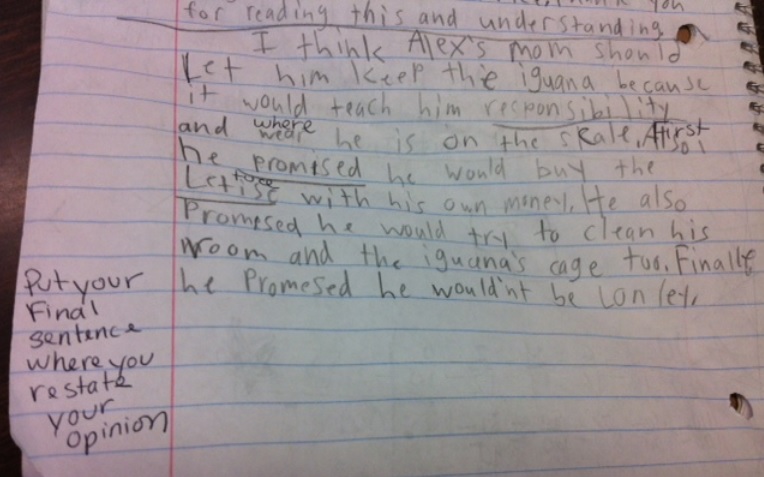 you
for reading this and understanding
I think Alex's mom should
Let him keep the iguana because
it would teach him responsibility
and where
wear he is on the skale. first
he promised he would buy the
Letise with his own money. He also
Promised he would try to clean his
room and the iguana's cage too. Finalle
he Promesed he would'nt be lonley.
Put your
Final
sentence
where you
restate
your
opinion